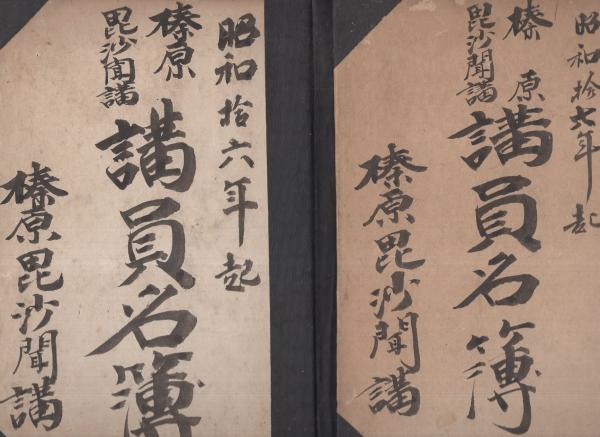 昭和拾七年起
榛原
毘沙聞講
講員名簿
榛原毘沙聞講
昭和拾六年起
榛原
毘沙聞講
講員名簿
榛原毘沙聞講